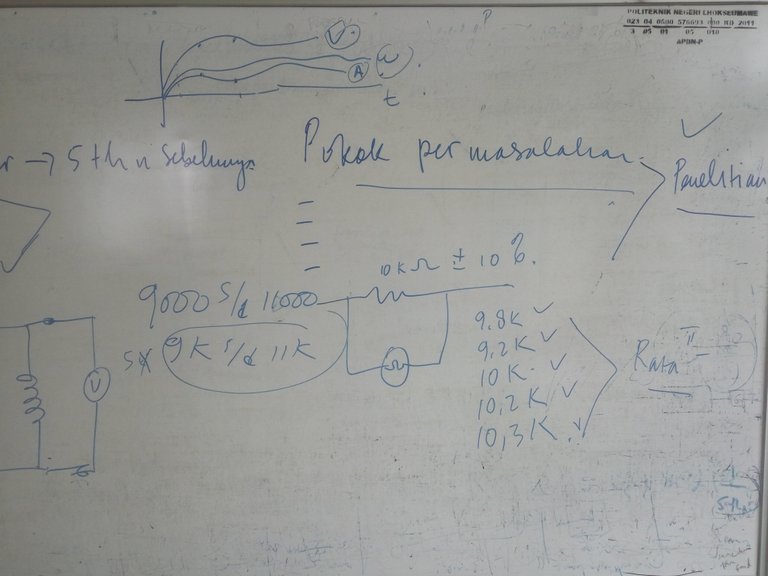 POLITEKNIK NEGERI LHOKSEUMAWE
023 04 0500 576693 000 KD 2011
3 05 01 05 010
APBN-P
P
V
W
A
t
r → 5 th n Sebelumnya
Pokok permasalahan
Penelitian
10K Ω ± 10 %.
9000 s/d 11000
5x
9K s/d 11K
V
Ω
9.8K ✓
9.2K ✓
10K ✓
10,2K ✓
10,3K ✓
Rata =